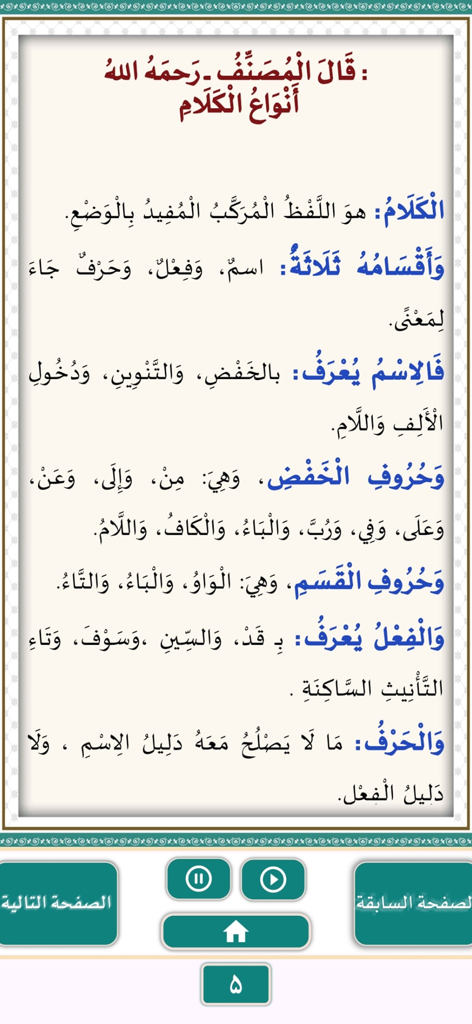 : قَالَ الْمُصَنِّفُ ـ رَحمَهُ اللهُ
أَنْوَاعُ الْكَلَامِ
الْكَلَامُ: هوَ اللَّفْظُ الْمُرَكَّبُ الْمُفِيدُ بِالْوَضْعِ.
وَأَقْسَامُهُ ثَلَاثَةٌ: اسمٌ، وَفِعْلٌ، وَحَرْفٌ جَاءَ
لِمَعْنًى.
فَالِاسْمُ يُعْرَفُ: بالخَفْضِ، وَالتَّنْوِينِ، وَدُخُولِ
الْأَلِفِ وَاللَّامِ.
وَحُرُوفِ الْخَفْضِ، وَهِيَ: مِنْ، وَإِلَى، وَعَنْ،
وَعَلَى، وَفِي، وَرُبَّ، وَالْبَاءُ، وَالْكَافُ، وَاللَّامُ.
وَحُرُوفِ الْقَسَمِ، وَهِيَ: الْوَاوُ، وَالْبَاءُ، وَالتَّاءُ.
وَالْفِعْلُ يُعْرَفُ: بِـ قَدْ، وَالسِّينِ ،وَسَوْفَ، وَتَاءِ
التَّأْنِيثِ السَّاكِنَةِ .
وَالْحَرْفُ: مَا لَا يَصْلُحُ مَعَهُ دَلِيلُ الِاسْمِ ، وَلَا
دَلِيلُ الْفِعْل.
الصفحة السابقة
الصفحة التالية
۵